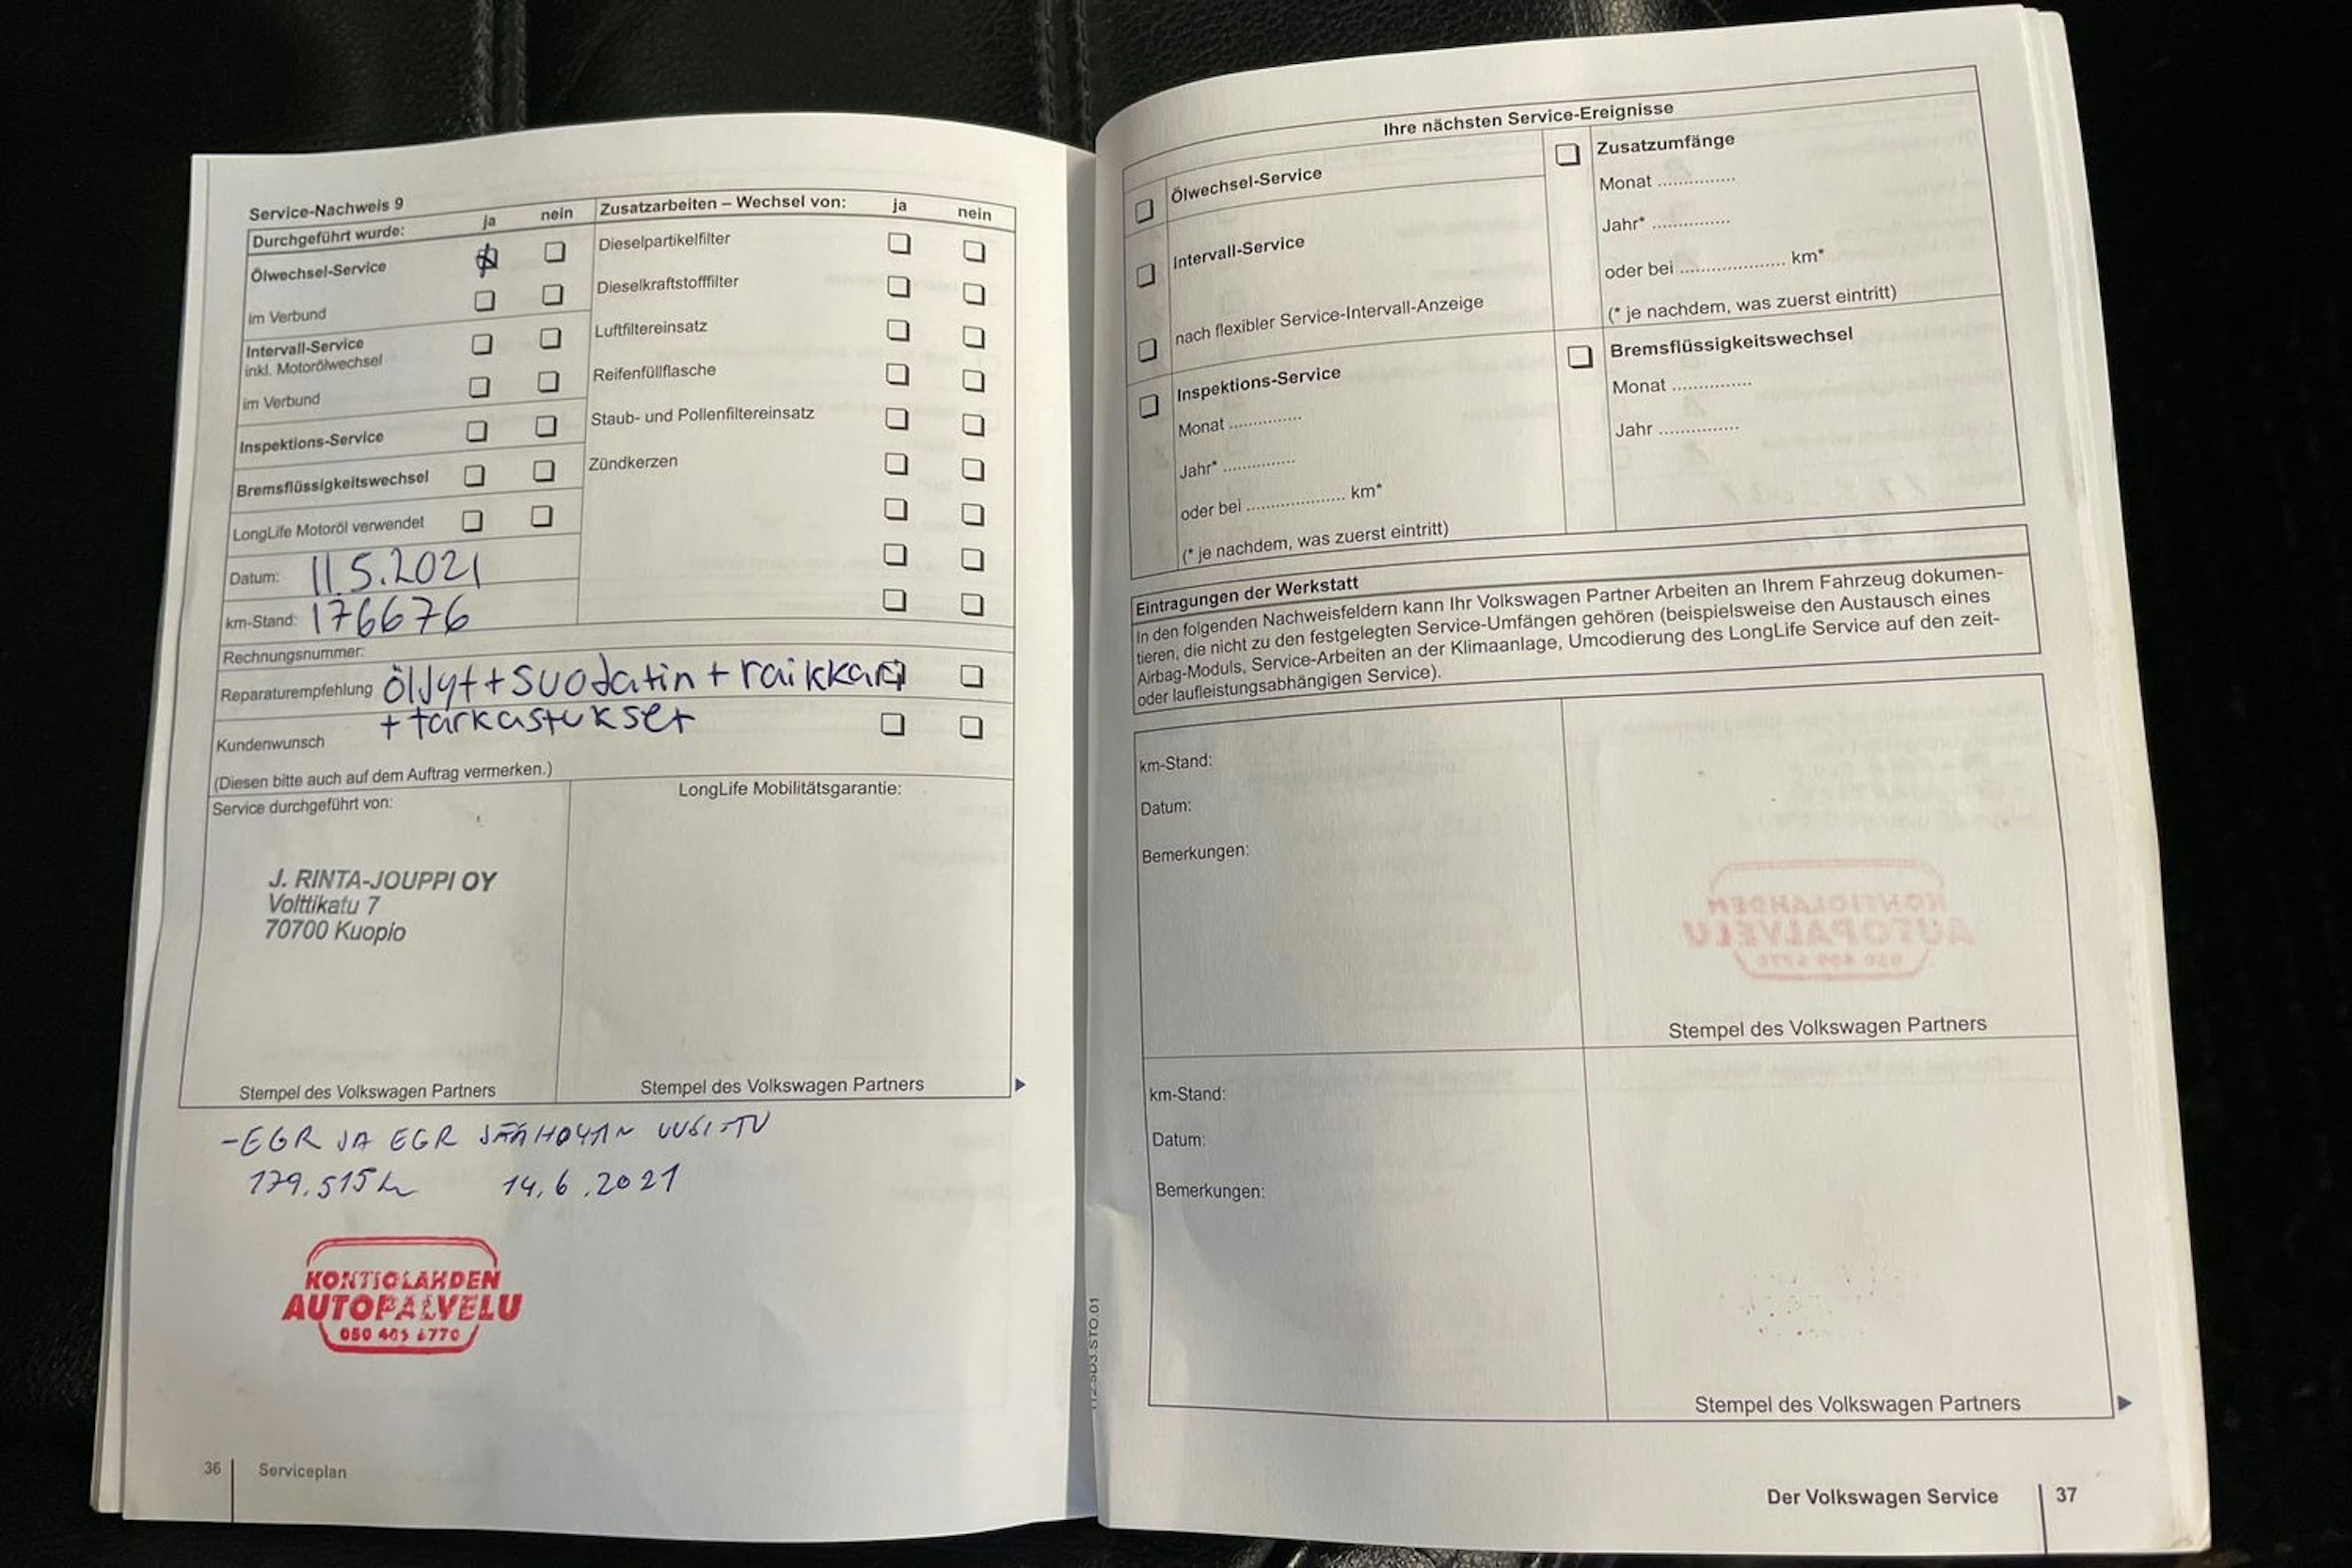 Service-Nachweis 9
Durchgeführt wurde: ja nein
Ölwechsel-Service
im Verbund
Intervall-Service
inkl. Motorölwechsel
im Verbund
Inspektions-Service
Bremsflüssigkeitswechsel
LongLife Motoröl verwendet
Datum: 11.5.2021
km-Stand: 176676
Zusatzarbeiten – Wechsel von: ja nein
Dieselpartikelfilter
Dieselkraftstofffilter
Luftfiltereinsatz
Reifenfüllflasche
Staub- und Pollenfiltereinsatz
Zündkerzen
Rechnungsnummer:
Reparaturempfehlung öljyt + suodatin + raikkari
+ tarkastukset
Kundenwunsch
(Diesen bitte auch auf dem Auftrag vermerken.)
Service durchgeführt von:
J. RINTA-JOUPPI OY
Volttikatu 7
70700 Kuopio
Stempel des Volkswagen Partners
LongLife Mobilitätsgarantie:
Stempel des Volkswagen Partners
-EGR JA EGR JÄÄHDYTIN UUSITTU
179.515 14.6.2021
KONTIOLAHDEN
AUTOPALVELU
36 Serviceplan
Ihre nächsten Service-Ereignisse
Ölwechsel-Service
Intervall-Service
nach flexibler Service-Intervall-Anzeige
Inspektions-Service
Monat ...............
Jahr* ...............
oder bei .................... km*
(* je nachdem, was zuerst eintritt)
Zusatzumfänge
Monat ...............
Jahr* ...............
oder bei .................... km*
(* je nachdem, was zuerst eintritt)
Bremsflüssigkeitswechsel
Monat ...............
Jahr ...............
Eintragungen der Werkstatt
In den folgenden Nachweisfeldern kann Ihr Volkswagen Partner Arbeiten an Ihrem Fahrzeug dokumen-
tieren, die nicht zu den festgelegten Service-Umfängen gehören (beispielsweise den Austausch eines
Airbag-Moduls, Service-Arbeiten an der Klimaanlage, Umcodierung des LongLife Service auf den zeit-
oder laufleistungsabhängigen Service).
km-Stand:
Datum:
Bemerkungen:
Stempel des Volkswagen Partners
km-Stand:
Datum:
Bemerkungen:
Stempel des Volkswagen Partners
Der Volkswagen Service 37